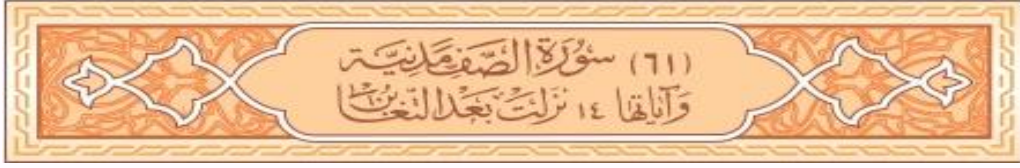 (٦١) سُورَةُ الصَّفِّ مَدَنِيَّة
وَآيَاتُهَا ١٤ نَزَلَتْ بَعْدَ التَّغَابُن